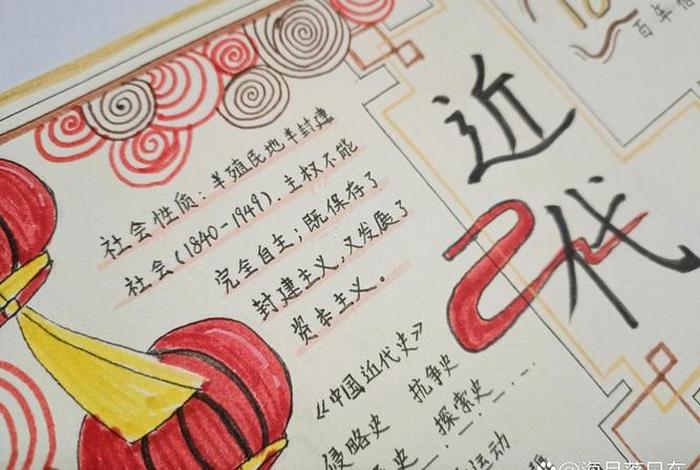 近代
百年
社会性质：半殖民地半封建
社会(1840-1949)．主权不能
完全自主；既保存了
封建主义，又发展了
资本主义。
《中国近代史》
侵略史 抗争史
史 探索史
运动